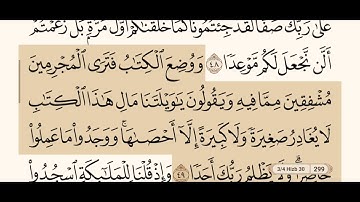 عَلَىٰ رَبِّكَ صَفًّا لَّقَدْ جِئْتُمُونَا كَمَا خَلَقْنَٰكُمْ أَوَّلَ مَرَّةٍۭ بَلْ زَعَمْتُمْ
أَلَّن نَّجْعَلَ لَكُم مَّوْعِدًا ٤٨ وَوُضِعَ ٱلْكِتَٰبُ فَتَرَى ٱلْمُجْرِمِينَ
مُشْفِقِينَ مِمَّا فِيهِ وَيَقُولُونَ يَٰوَيْلَتَنَا مَالِ هَٰذَا ٱلْكِتَٰبِ
لَا يُغَادِرُ صَغِيرَةً وَلَا كَبِيرَةً إِلَّآ أَحْصَىٰهَا ۚ وَوَجَدُوا۟ مَا عَمِلُوا۟
حَاضِرًا ۗ وَلَا يَظْلِمُ رَبُّكَ أَحَدًا ٤٩ وَإِذْ قُلْنَا لِلْمَلَٰٓئِكَةِ ٱسْجُدُوا۟
3/4 Hizb 30 299